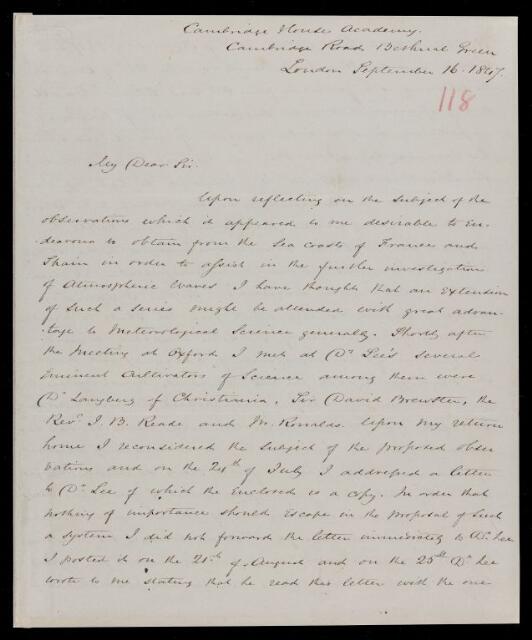 Cambridge House Academy.
Cambridge Road Bethnal Green
London September 16. 1847.
118
My Dear Sir.
Upon reflecting on the subject of the
observations which it appeared to me desirable to En-
deavour to obtain from the Sea coasts of France and
Spain in order to assist in the further investigation
of Atmospheric Waves I have thought that an Extension
of such a series might be attended with great advan-
tage to Meteorological Science generally. Shortly after
the Meeting at Oxford I met at Dr Lee's several
Eminent Cultivators of Science among them were
Dr Langberg of Christiania, Sir David Brewster, the
Revd. J. B. Reade and Mr Ronalds. Upon my return
home I reconsidered the subject of the proposed obser
vations and on the 24th of July I addressed a letter
to Dr Lee of which the Enclosed is a copy. In order that
nothing of importance should Escape in the proposal of such
a system I did not forward the letter immediately to Dr Lee
I posted it on the 21st of August and on the 25th Dr Lee
wrote to me stating that he read this letter with the one